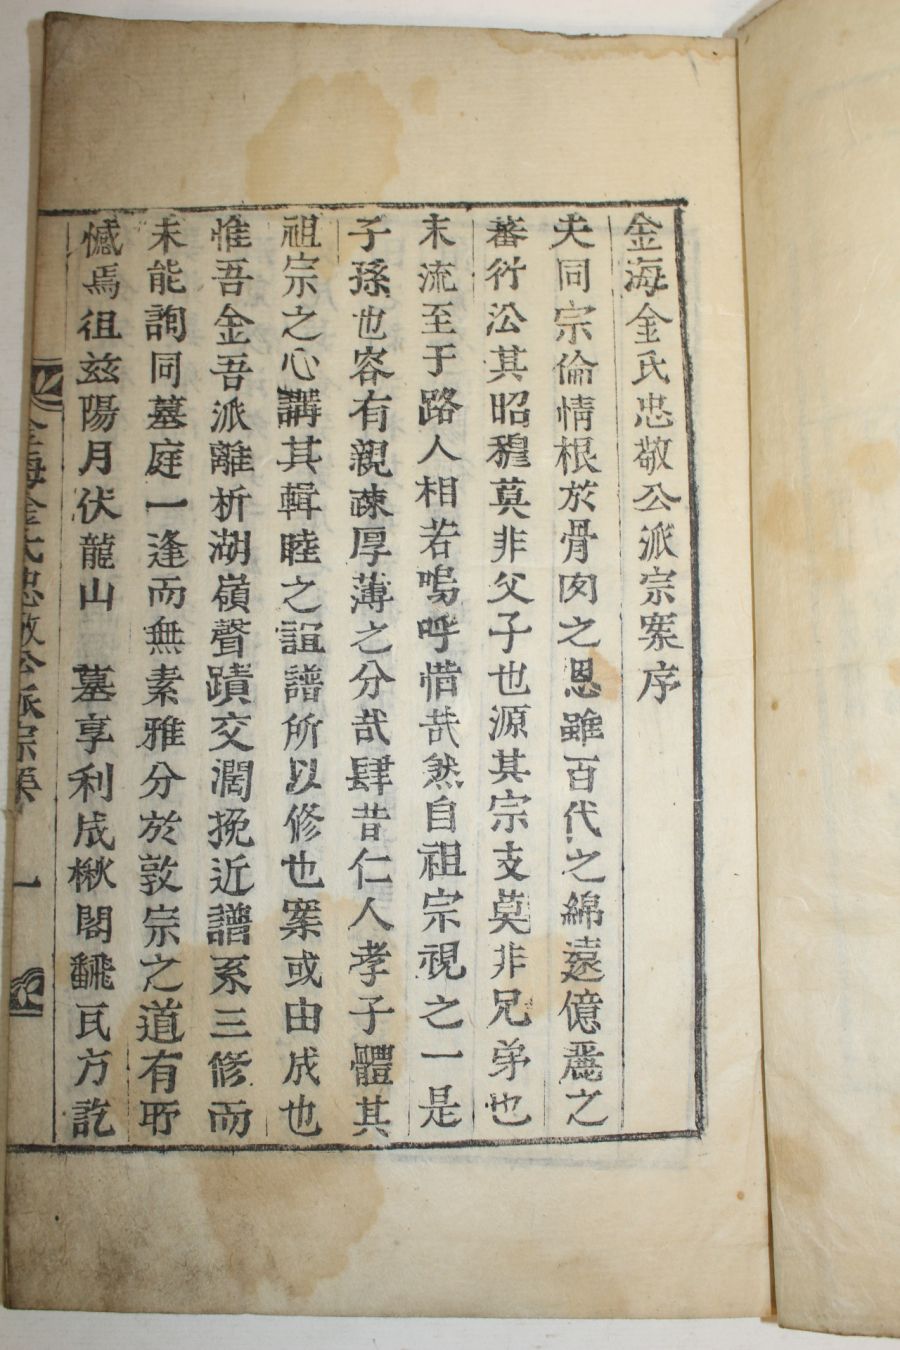 金海金氏忠敬公派宗案序
夫同宗倫情根於骨肉之恩雖百代之綿遠億麗之
蕃衍公其昭穆莫非父子也源其宗支莫非兄弟也
末流至于路人相若嗚呼惜哉然自祖宗視之一是
子孫也容有親疎厚薄之分哉肆昔仁人孝子體其
祖宗之心講其輯睦之誼譜所以修也案或由成也
惟吾金吾派離析湖嶺聲蹟交濶挽近譜系三修而
未能詢同墓庭一逢而無素雅分於敦宗之道有所
憾焉徂玆陽月伏龍山 墓享利成楸閣飜瓦方訖
金海金氏忠敬公派宗案 一